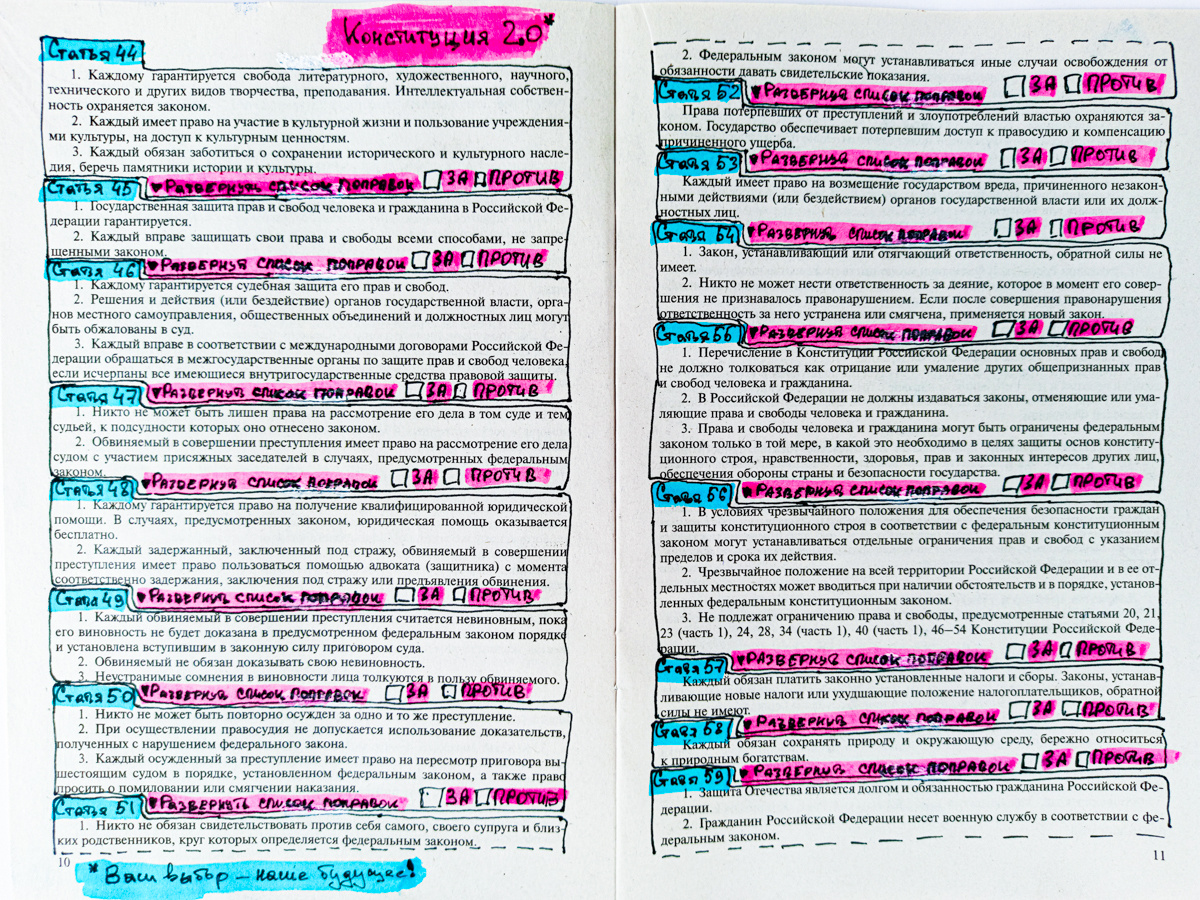 Конституция 2.0*
Статья 44
1. Каждому гарантируется свобода литературного, художественного, научного,
технического и других видов творчества, преподавания. Интеллектуальная собствен-
ность охраняется законом.
2. Каждый имеет право на участие в культурной жизни и пользование учреждения-
ми культуры, на доступ к культурным ценностям.
3. Каждый обязан заботиться о сохранении исторического и культурного насле-
дия, беречь памятники истории и культуры.
Статья 45 ▼Развернуть список поправок □ ЗА □ ПРОТИВ
1. Государственная защита прав и свобод человека и гражданина в Российской Фе-
дерации гарантируется.
2. Каждый вправе защищать свои права и свободы всеми способами, не запре-
щенными законом.
Статья 46 ▼Развернуть список поправок □ ЗА □ ПРОТИВ
1. Каждому гарантируется судебная защита его прав и свобод.
2. Решения и действия (или бездействие) органов государственной власти, орга-
нов местного самоуправления, общественных объединений и должностных лиц могут
быть обжалованы в суд.
3. Каждый вправе в соответствии с международными договорами Российской Фе-
дерации обращаться в межгосударственные органы по защите прав и свобод человека,
если исчерпаны все имеющиеся внутригосударственные средства правовой защиты.
Статья 47 ▼Развернуть список поправок □ ЗА □ ПРОТИВ
1. Никто не может быть лишен права на рассмотрение его дела в том суде и тем
судьей, к подсудности которых оно отнесено законом.
2. Обвиняемый в совершении преступления имеет право на рассмотрение его дела
судом с участием присяжных заседателей в случаях, предусмотренных федеральным
законом.
Статья 48 ▼Развернуть список поправок □ ЗА □ ПРОТИВ
1. Каждому гарантируется право на получение квалифицированной юридической
помощи. В случаях, предусмотренных законом, юридическая помощь оказывается
бесплатно.
2. Каждый задержанный, заключенный под стражу, обвиняемый в совершении
преступления имеет право пользоваться помощью адвоката (защитника) с момента
соответственно задержания, заключения под стражу или предъявления обвинения.
Статья 49 ▼Развернуть список поправок □ ЗА □ ПРОТИВ
1. Каждый обвиняемый в совершении преступления считается невиновным, пока
его виновность не будет доказана в предусмотренном федеральным законом порядке
и установлена вступившим в законную силу приговором суда.
2. Обвиняемый не обязан доказывать свою невиновность.
3. Неустранимые сомнения в виновности лица толкуются в пользу обвиняемого.
Статья 50 ▼Развернуть список поправок □ ЗА □ ПРОТИВ
1. Никто не может быть повторно осужден за одно и то же преступление.
2. При осуществлении правосудия не допускается использование доказательств,
полученных с нарушением федерального закона.
3. Каждый осужденный за преступление имеет право на пересмотр приговора вы-
шестоящим судом в порядке, установленном федеральным законом, а также право
просить о помиловании или смягчении наказания.
Статья 51 ▼Развернуть список поправок □ ЗА □ ПРОТИВ
1. Никто не обязан свидетельствовать против себя самого, своего супруга и близ-
ких родственников, круг которых определяется федеральным законом.
10
*Ваш выбор – наше будущее!
2. Федеральным законом могут устанавливаться иные случаи освобождения от
обязанности давать свидетельские показания.
Статья 52 ▼Развернуть список поправок □ ЗА □ ПРОТИВ
Права потерпевших от преступлений и злоупотреблений властью охраняются за-
коном. Государство обеспечивает потерпевшим доступ к правосудию и компенсацию
причиненного ущерба.
Статья 53 ▼Развернуть список поправок □ ЗА □ ПРОТИВ
Каждый имеет право на возмещение государством вреда, причиненного незакон-
ными действиями (или бездействием) органов государственной власти или их долж-
ностных лиц.
Статья 54 ▼Развернуть список поправок □ ЗА □ ПРОТИВ
1. Закон, устанавливающий или отягчающий ответственность, обратной силы не
имеет.
2. Никто не может нести ответственность за деяние, которое в момент его совер-
шения не признавалось правонарушением. Если после совершения правонарушения
ответственность за него устранена или смягчена, применяется новый закон.
Статья 55 ▼Развернуть список поправок □ ЗА □ ПРОТИВ
1. Перечисление в Конституции Российской Федерации основных прав и свобод
не должно толковаться как отрицание или умаление других общепризнанных прав
и свобод человека и гражданина.
2. В Российской Федерации не должны издаваться законы, отменяющие или ума-
ляющие права и свободы человека и гражданина.
3. Права и свободы человека и гражданина могут быть ограничены федеральным
законом только в той мере, в какой это необходимо в целях защиты основ конститу-
ционного строя, нравственности, здоровья, прав и законных интересов других лиц,
обеспечения обороны страны и безопасности государства.
Статья 56 ▼Развернуть список поправок □ ЗА □ ПРОТИВ
1. В условиях чрезвычайного положения для обеспечения безопасности граждан
и защиты конституционного строя в соответствии с федеральным конституционным
законом могут устанавливаться отдельные ограничения прав и свобод с указанием
пределов и срока их действия.
2. Чрезвычайное положение на всей территории Российской Федерации и в ее от-
дельных местностях может вводиться при наличии обстоятельств и в порядке, установ-
ленных федеральным конституционным законом.
3. Не подлежат ограничению права и свободы, предусмотренные статьями 20, 21,
23 (часть 1), 24, 28, 34 (часть 1), 40 (часть 1), 46–54 Конституции Российской Феде-
рации.
Статья 57 ▼Развернуть список поправок □ ЗА □ ПРОТИВ
Каждый обязан платить законно установленные налоги и сборы. Законы, устанав-
ливающие новые налоги или ухудшающие положение налогоплательщиков, обратной
силы не имеют.
Статья 58 ▼Развернуть список поправок □ ЗА □ ПРОТИВ
Каждый обязан сохранять природу и окружающую среду, бережно относиться
к природным богатствам.
Статья 59 ▼Развернуть список поправок □ ЗА □ ПРОТИВ
1. Защита Отечества является долгом и обязанностью гражданина Российской Фе-
дерации.
2. Гражданин Российской Федерации несет военную службу в соответствии с фе-
деральным законом.
11